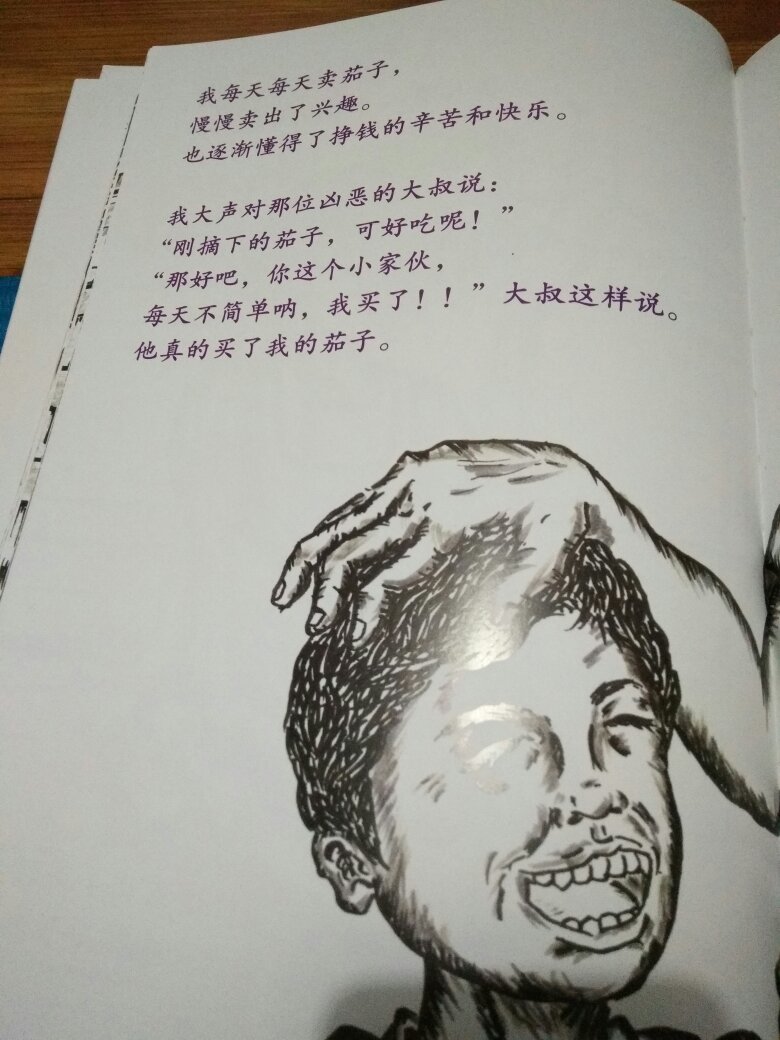 我每天每天卖茄子，
慢慢卖出了兴趣。
也逐渐懂得了挣钱的辛苦和快乐。
我大声对那位凶恶的大叔说：
“刚摘下的茄子，可好吃呢！”
“那好吧，你这个小家伙，
每天不简单呐，我买了！！”大叔这样说。
他真的买了我的茄子。